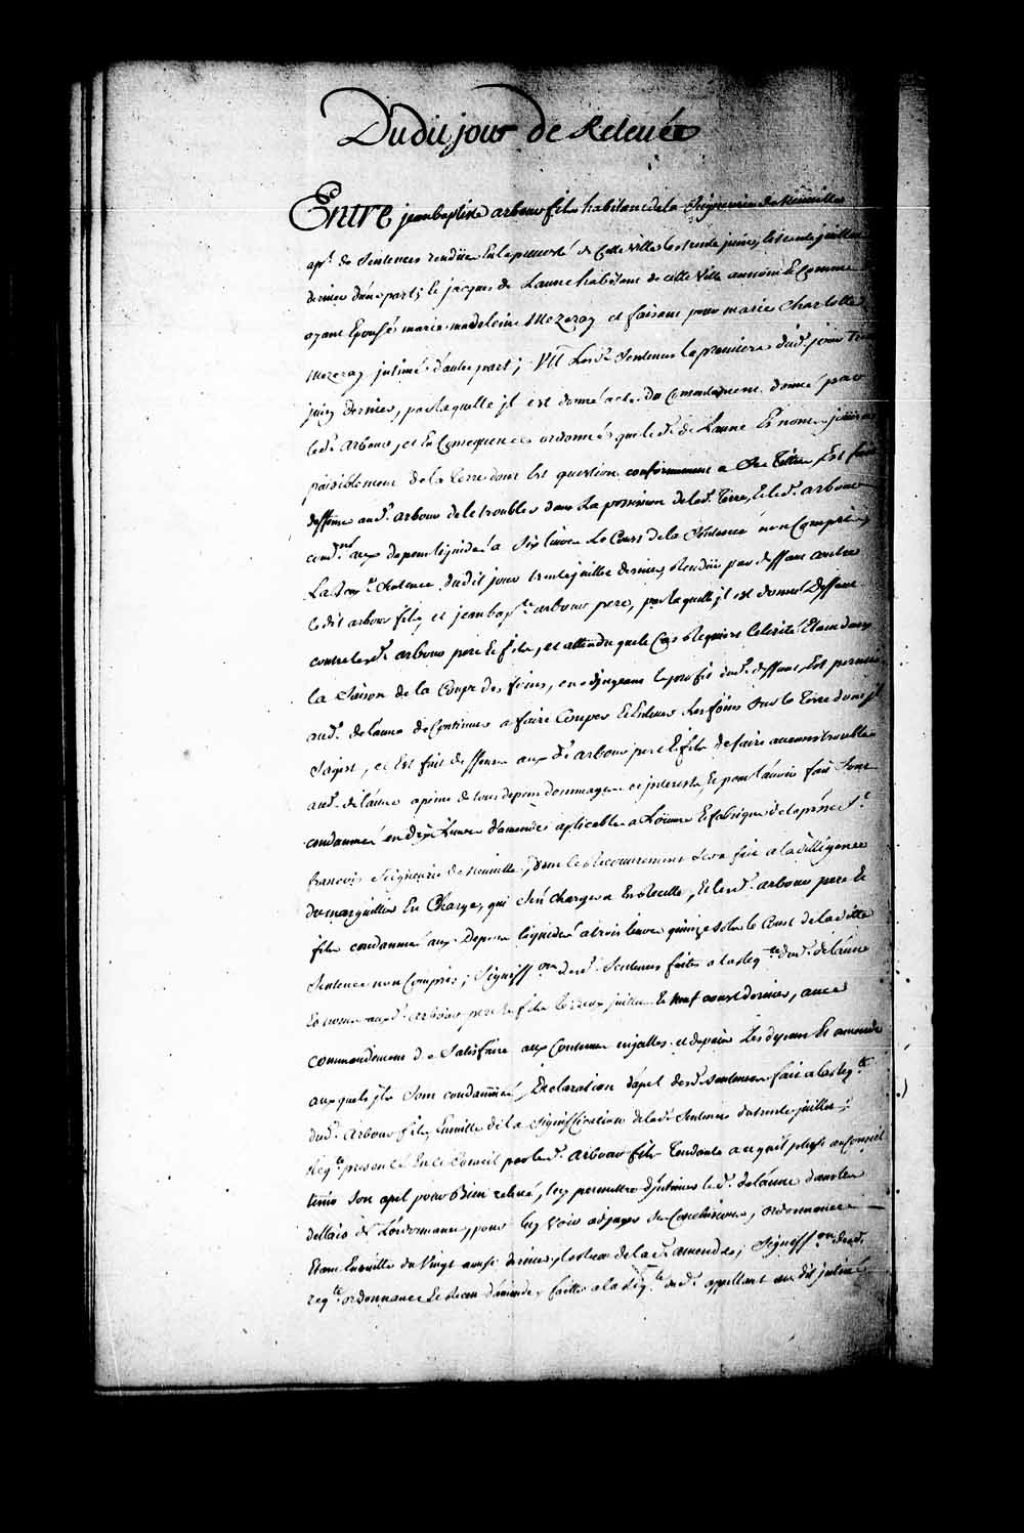 Dudit jour de Relevée
Entre jean baptiste arbour fils habitant de la Seigneurie de Neuville
apt. de Sentences rendües En la prevosté de Cette Ville les trente juin, et trente juillet
dernier d'une part; Et jacques de Launé habitant de cette Ville au nom Et Comme
ayant Epousé marie madeleine Mezeray et faisant pour marie Charlotte
Mezeray jntimé d'autre part; Vû Lesd. Sentences la premiere dud. jour
juin dernier, par laquelle jl est donné acte du donné par
led. Arbour, et En Consequence ordonné que le d. de Launé Es noms joüira
paisiblement de la terre dont Est question conformement a Ses titres, Est fait
deffense aud. Arbour de le troubler dans La possession de lad. terre, Et led. arbour
cond.né aux depens liquidés a Six livres Le Coust de la Sentence non Compris;
La Sentence dudit jour trente juillet dernier, Rendüe par deffaut contre
ledit arbour fils, et jean bap.te arbour pere, par laquelle jl est donné Deffaut
contre lesd. arbour pere Et fils, et attendu que le Cas Requiert Celerité Etant dans
la Saison de la Coupe des foins, en adjugeant le profit dud. deffaut, Est permis
aud. de Launé de Continuer a faire Couper Et Enlever Les foins Sur la terre dont jl
s'agist, et Est fait deffenses aux d. arbour pere Et fils de faire aucuns troubles
aud. de Launé a peine de tous depens dommages et jnterests, Et pour l'avoir fait Sont
condamnés en dix Livres d'amende aplicable a L'oeuvre Et fabrique de la p.sse S.t
francois Seigneurie de Neuville, dont le Recouvrement Sera fait a la diligence
du marguillier En Charge, qui s'en chargera En Recette, Et lesd. arbour pere Et
fils condamnés aux Depens liquidés a trois livres quinze sols le Coust de la ditte
Sentence non Compris; Signiff.on desd. Sentences faites a la Req.te dud. de Launé
Es noms auxd. Arbour pere Et fils Les juillet Et neuf aoust dernier, avec
commandement de Satisfaire aux Contenu en jcelles et de payer Les depens Et amende
auxquels jls Sont condamnés, Declaration d'apel desd. Sentences faite a la Req.te
dud. Arbour fils, Ensuitte de la Signiffication de lad. Sentence du trente juillet;
Req.te presentée En Ce Conseil par led. Arbour fils Tendante a ce qu'il plaise au Conseil
tenir Son apel pour Bien relevé, luy permettre d'jntimer le d. de Launé dans les
dellais de L'ordonnance, pour luy Voir adjuger Ses Conclusions, ordonnance
Etant Ensuitte du Vingt aoust dernier, de la d. amende; Signiff.on desd.
req.te ordonnance Et Receu d'amende, faitte a la Req.te du d. appellant au dit jntimé